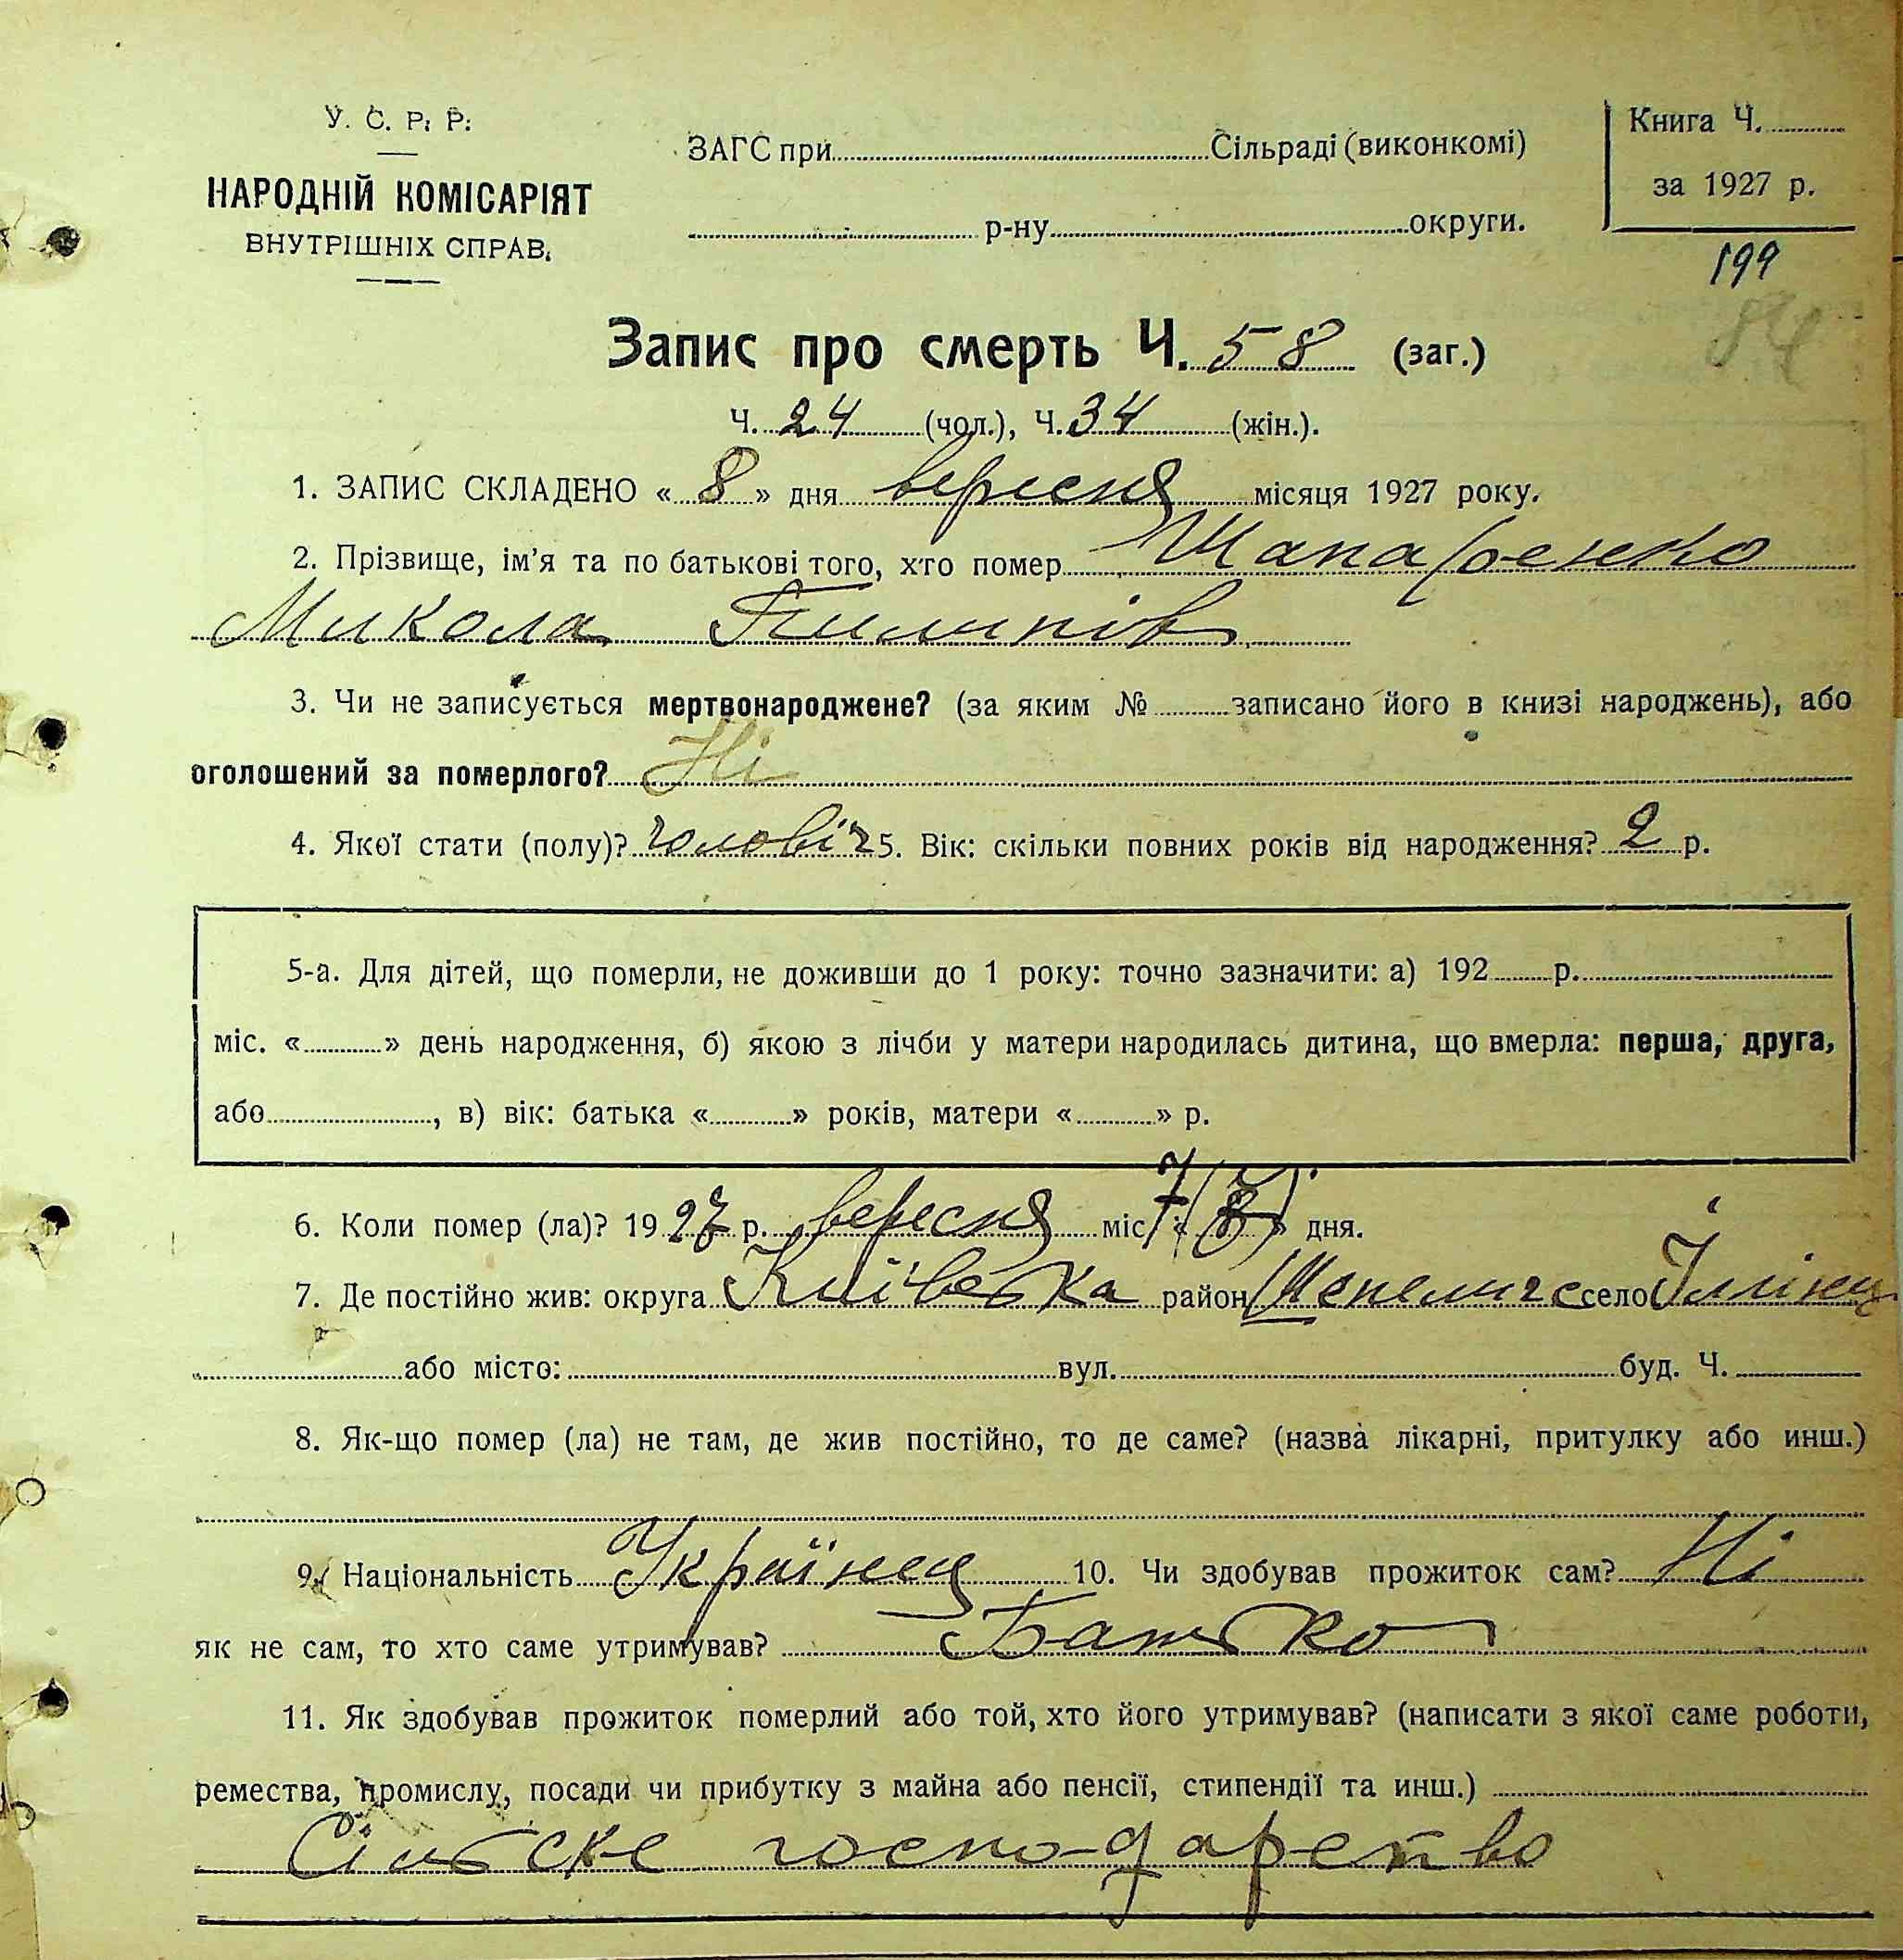 У. С. Р. Р.
НАРОДНІЙ КОМІСАРІЯТ
ВНУТРІШНІХ СПРАВ.
ЗАГС при Сільраді (виконкомі)
р-ну округи.
Книга Ч.
за 1927 р.
199
84
Запис про смерть Ч. 58 (заг.)
Ч. 24 (чол.), Ч. 34 (жін.).
1. ЗАПИС СКЛАДЕНО « 8 » дня вересня місяця 1927 року.
2. Прізвище, ім'я та по батькові того, хто помер Шапаренко
Микола Пилипів
3. Чи не записується мертвонароджене? (за яким № записано його в книзі народжень), або
оголошений за померлого? Ні
4. Якої стати (полу)? чоловіч 5. Вік: скільки повних років від народження? 2 р.
5-а. Для дітей, що померли, не доживши до 1 року: точно зазначити: а) 192 р.
міс. « » день народження, б) якою з лічби у матери народилась дитина, що вмерла: перша, друга,
або , в) вік: батька « » років, матери « » р.
6. Коли помер (ла)? 1927 р. вересня міс. « 7 » дня.
7. Де постійно жив: округа Київська район Шепеличе село Іллінці
або місто: вул. буд. Ч.
8. Як-що помер (ла) не там, де жив постійно, то де саме? (назва лікарні, притулку або инш.)
9. Національність Українец 10. Чи здобував прожиток сам? Ні
як не сам, то хто саме утримував? Батько
11. Як здобував прожиток померлий або той, хто його утримував? (написати з якої саме роботи,
ремества, промислу, посади чи прибутку з майна або пенсії, стипендії та инш.)
Сільске господарство